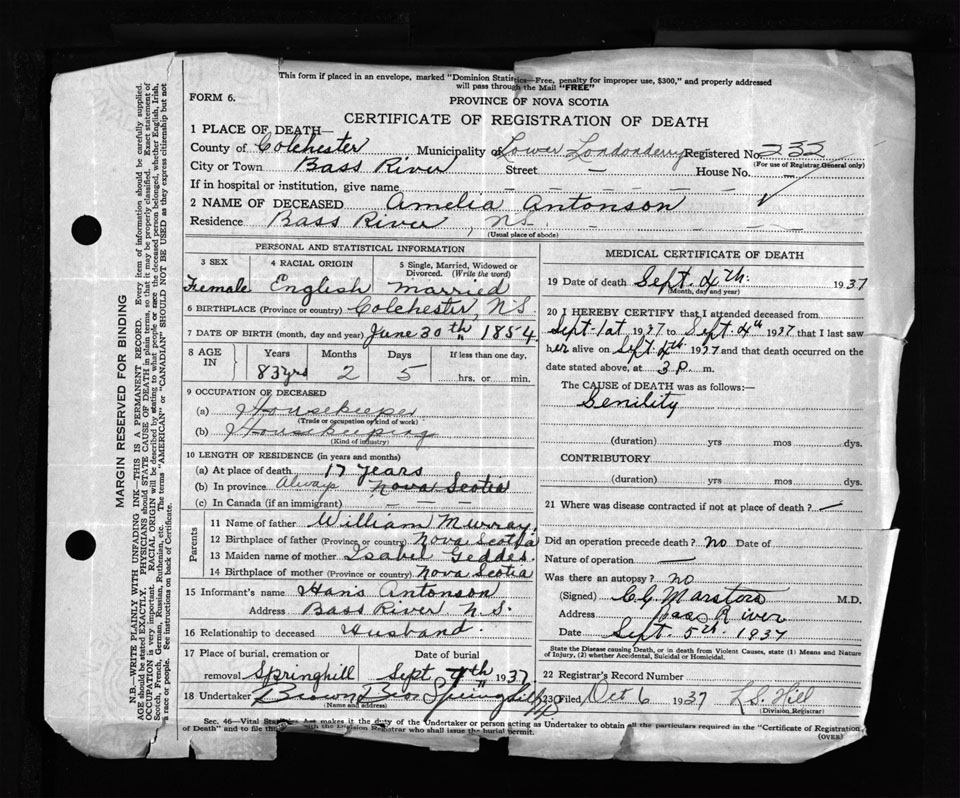 This form if placed in an envelope, marked "Dominion Statistics—Free, penalty for improper use, $300," and properly addressed
will pass through the Mail "FREE"
FORM 6.
PROVINCE OF NOVA SCOTIA
CERTIFICATE OF REGISTRATION OF DEATH
1 PLACE OF DEATH—
County of Colchester Municipality of Lower Londonderry Registered No. 232
(For use of Registrar General only)
City or Town Bass River Street — House No. —
If in hospital or institution, give name — — — — — —
2 NAME OF DECEASED Amelia Antonson
Residence Bass River, N.S. — — — —
(Usual place of abode)
PERSONAL AND STATISTICAL INFORMATION
3 SEX 4 RACIAL ORIGIN 5 Single, Married, Widowed or
Divorced. (Write the word)
Female English Married
6 BIRTHPLACE (Province or country) Colchester, N.S.
7 DATE OF BIRTH (month, day and year) June 30th 1854.
8 AGE IN Years Months Days If less than one day,
83 yrs 2 5 hrs. or min.
9 OCCUPATION OF DECEASED
(a) Housekeeper
(Trade or occupation or kind of work)
(b) Housekeeping
(Kind of industry)
10 LENGTH OF RESIDENCE (in years and months)
(a) At place of death 17 years
(b) In province Always Nova Scotia
(c) In Canada (if an immigrant) — —
Parents
11 Name of father William Murray.
12 Birthplace of father (Province or country) Nova Scotia
13 Maiden name of mother Isabel Geddes.
14 Birthplace of mother (Province or country) Nova Scotia
15 Informant's name Hans Antonson
Address Bass River N.S.
16 Relationship to deceased Husband.
17 Place of burial, cremation or Date of burial
removal Springhill Sept 7th 1937
18 Undertaker Brown Bros Springhill
(Name and address)
MEDICAL CERTIFICATE OF DEATH
19 Date of death Sept. 4th. 1937
(Month, day and year)
20 I HEREBY CERTIFY that I attended deceased from
Sept. 1st 1937 to Sept. 4th 1937 that I last saw
her alive on Sept. 4th 1937 and that death occurred on the
date stated above, at 3 P. m.
The CAUSE OF DEATH was as follows:—
Senility
(duration) yrs mos dys.
CONTRIBUTORY
(duration) yrs. mos. dys.
21 Where was disease contracted if not at place of death? —
Did an operation precede death? no Date of
Nature of operation —
Was there an autopsy? no
(Signed) M.D.
Address Bass River
Date Sept. 5th. 1937
State the Disease causing Death, or in death from Violent Causes, state (1) Means and Nature
of Injury, (2) whether Accidental, Suicidal or Homicidal.
22 Registrar's Record Number
23 Filed Oct 6 1937 L.S. Hill
(Division Registrar)
Sec. 46—Vital Statistics Act makes it the duty of the Undertaker or person acting as Undertaker to obtain all the particulars required in the "Certificate of Registration
of Death" and to file the with the Division Registrar who shall issue the burial permit. (OVER)
MARGIN RESERVED FOR BINDING
N.B.—WRITE PLAINLY WITH UNFADING INK—THIS IS A PERMANENT RECORD. Every item of information should be carefully supplied.
AGE should be stated EXACTLY. PHYSICIANS should STATE CAUSE OF DEATH in plain terms, so that it may be properly classified. Exact statement of
OCCUPATION is very important. RACIAL ORIGIN will be described by stating to what people or race the deceased person belonged, whether English, Irish,
Scotch, French, German, Russian, Ruthenian, etc. The terms "AMERICAN" or "CANADIAN" SHOULD NOT BE USED as they express citizenship but not
a race or people. See instructions on back of Certificate.